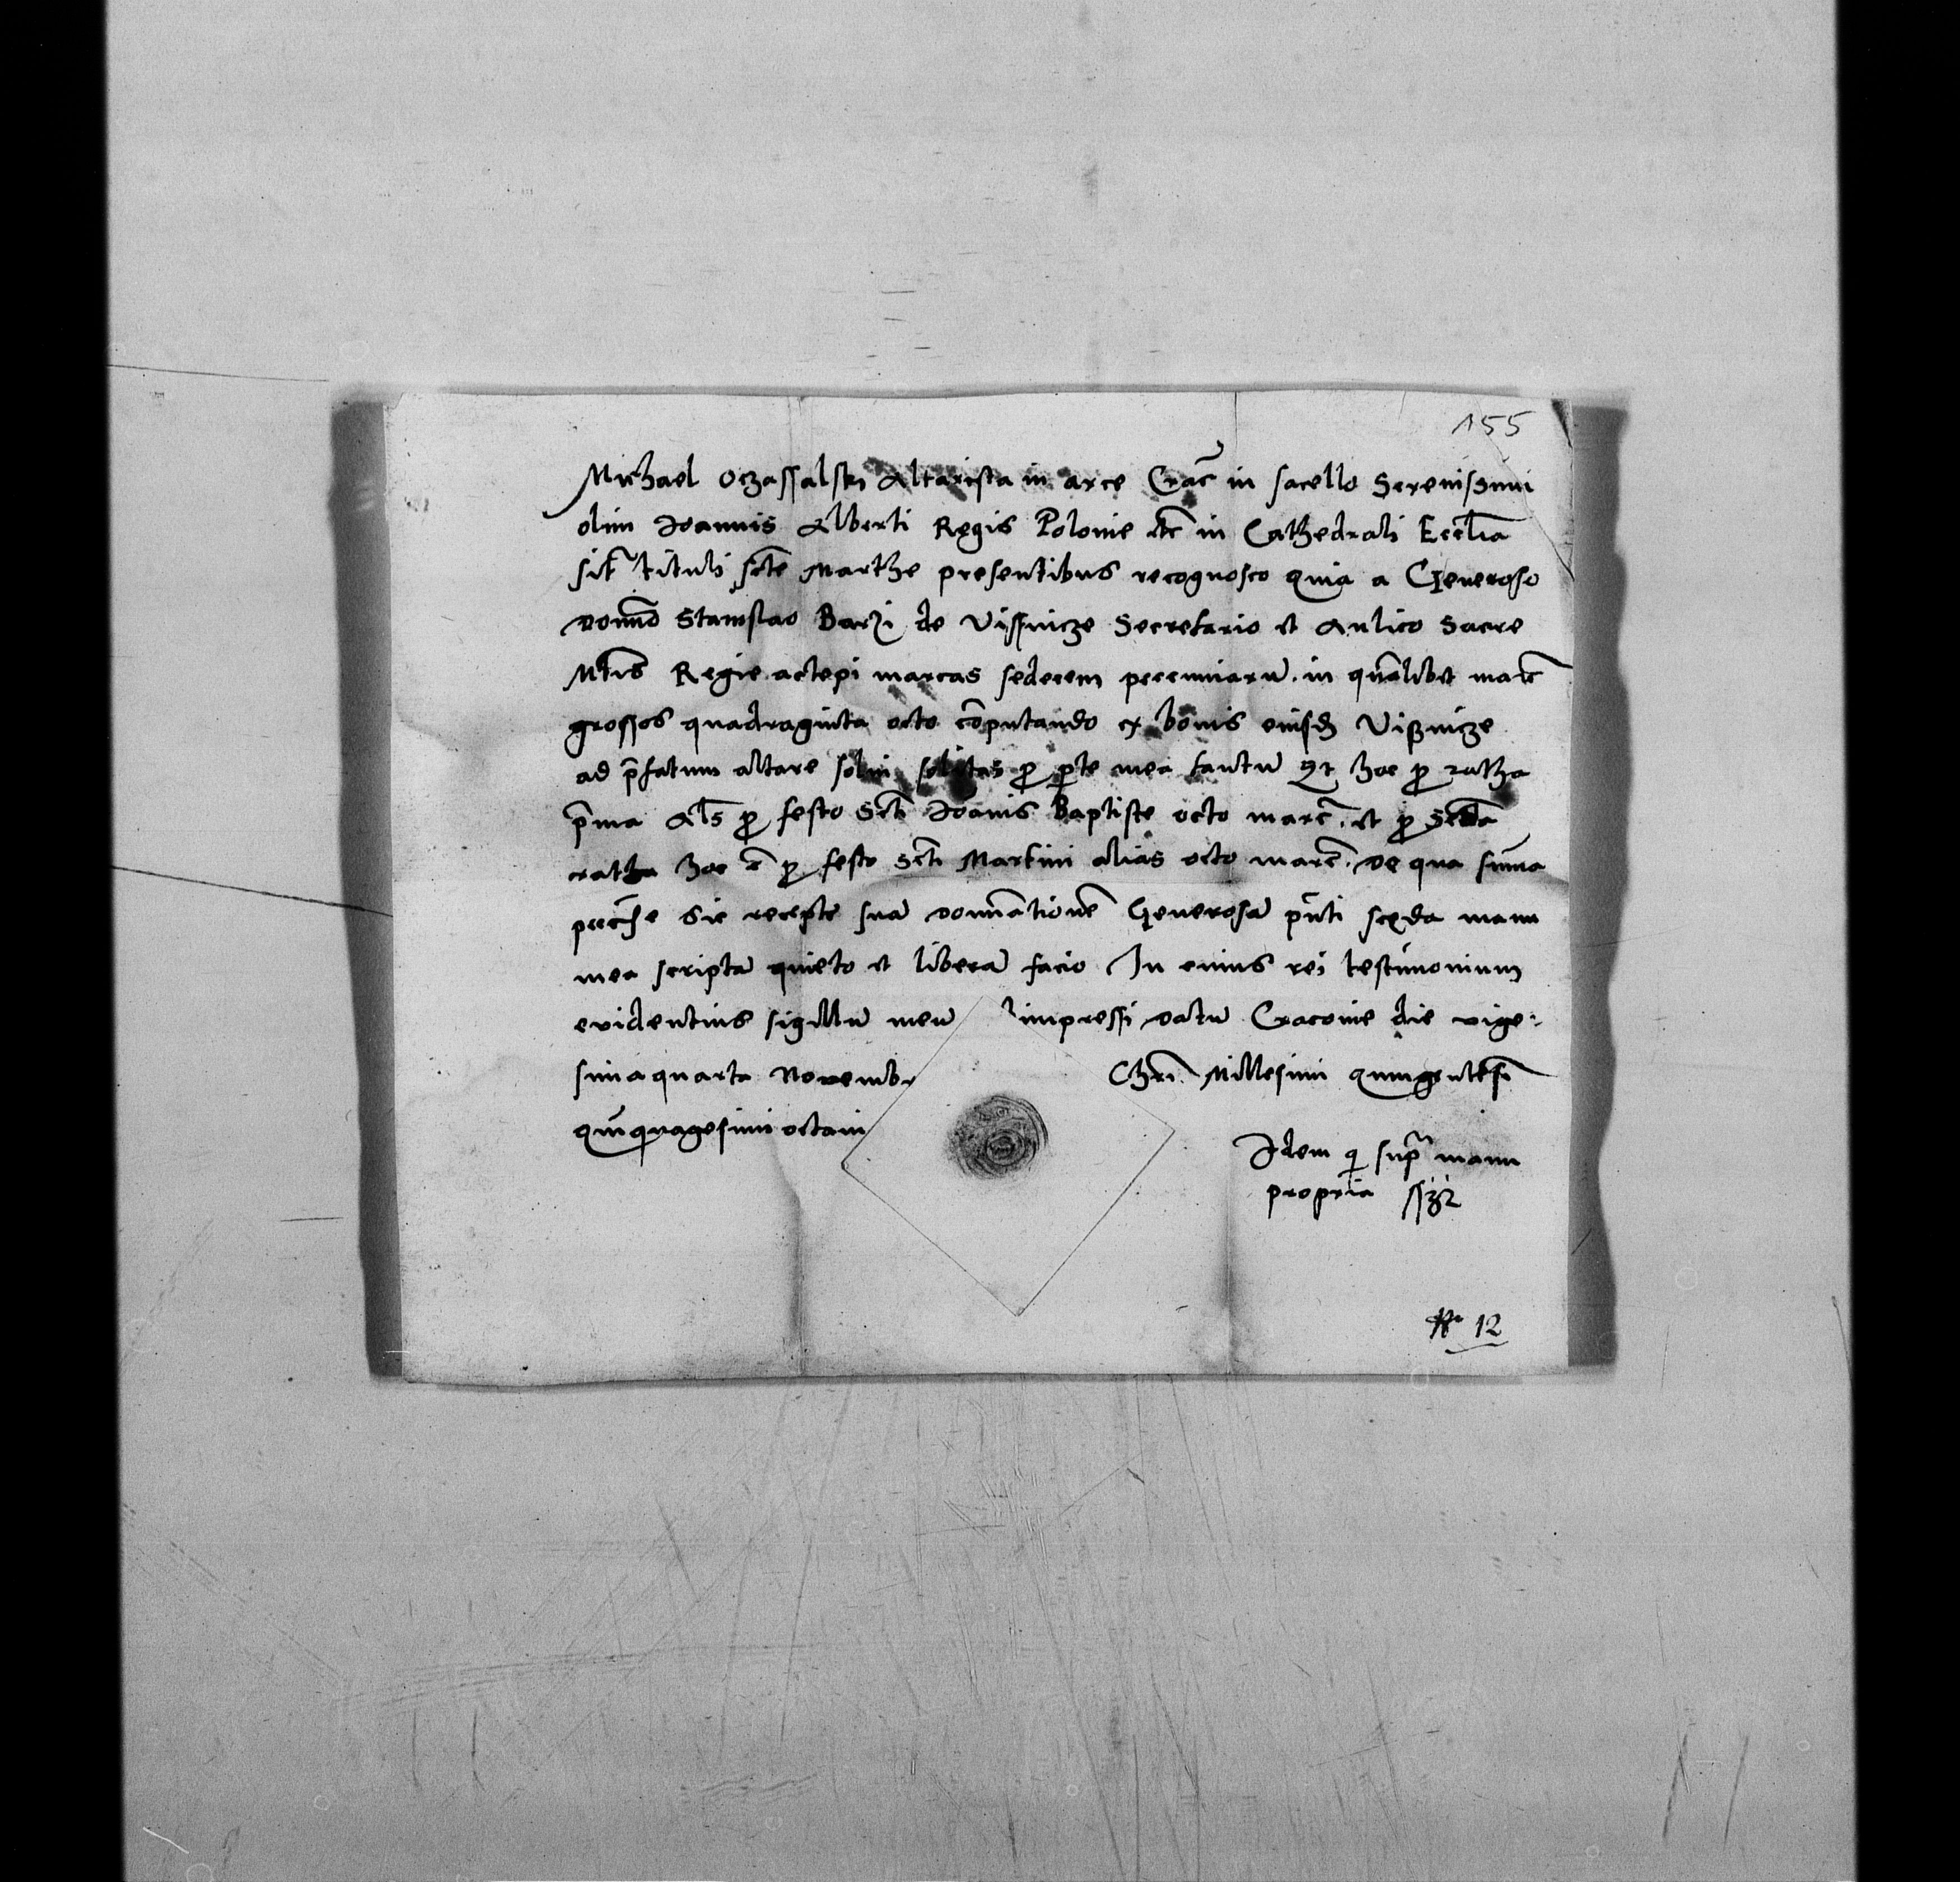 155
Michael Oczassalski Altarista in arce Crac̃ in sacello Serenissimi
olim Joannis Alberti Regis Polonie etc̃ in Cathedrali Eccl̃ia
sit̃ tituli sctẽ Marthe presentibus recognosco quia a Generoso
dom̃o Stanislao Barzi de Vissnicze Secretario et Aulico Sacre
Mtĩs Regie accepi marcas sedecem peccuniarũ. in quãlibet marc̃
grossos quadraginta octo cõputando ex bonis eiusd̃ Visznicze
ad p̃fatum altare solui solitas ꝑ ꝑte mea tantũ Et hoc ꝓ ratha
p̃ma Al̃s ꝓ festo Sctĩ Joãnis Baptiste octo marc̃. et ꝓ Scd̃a
ratha hoc ẽ ꝓ festo Sctĩ Martini alias octo marc̃. de qua sum̃a
pecc̃ie sic recepte suã domĩationẽ Generosã pñti scęda manu
mea scripta quieto et liberã facio In cuius rei testimonium
evidentius sigillũ meũ impressi datũ Cracovie die vige:
sima quarta Novembr
Chrĩ Millesimi quingentesĩ
quĩquagesimi octaui
Idem q̃ sup̃ manu
propria ssz
Nr 12